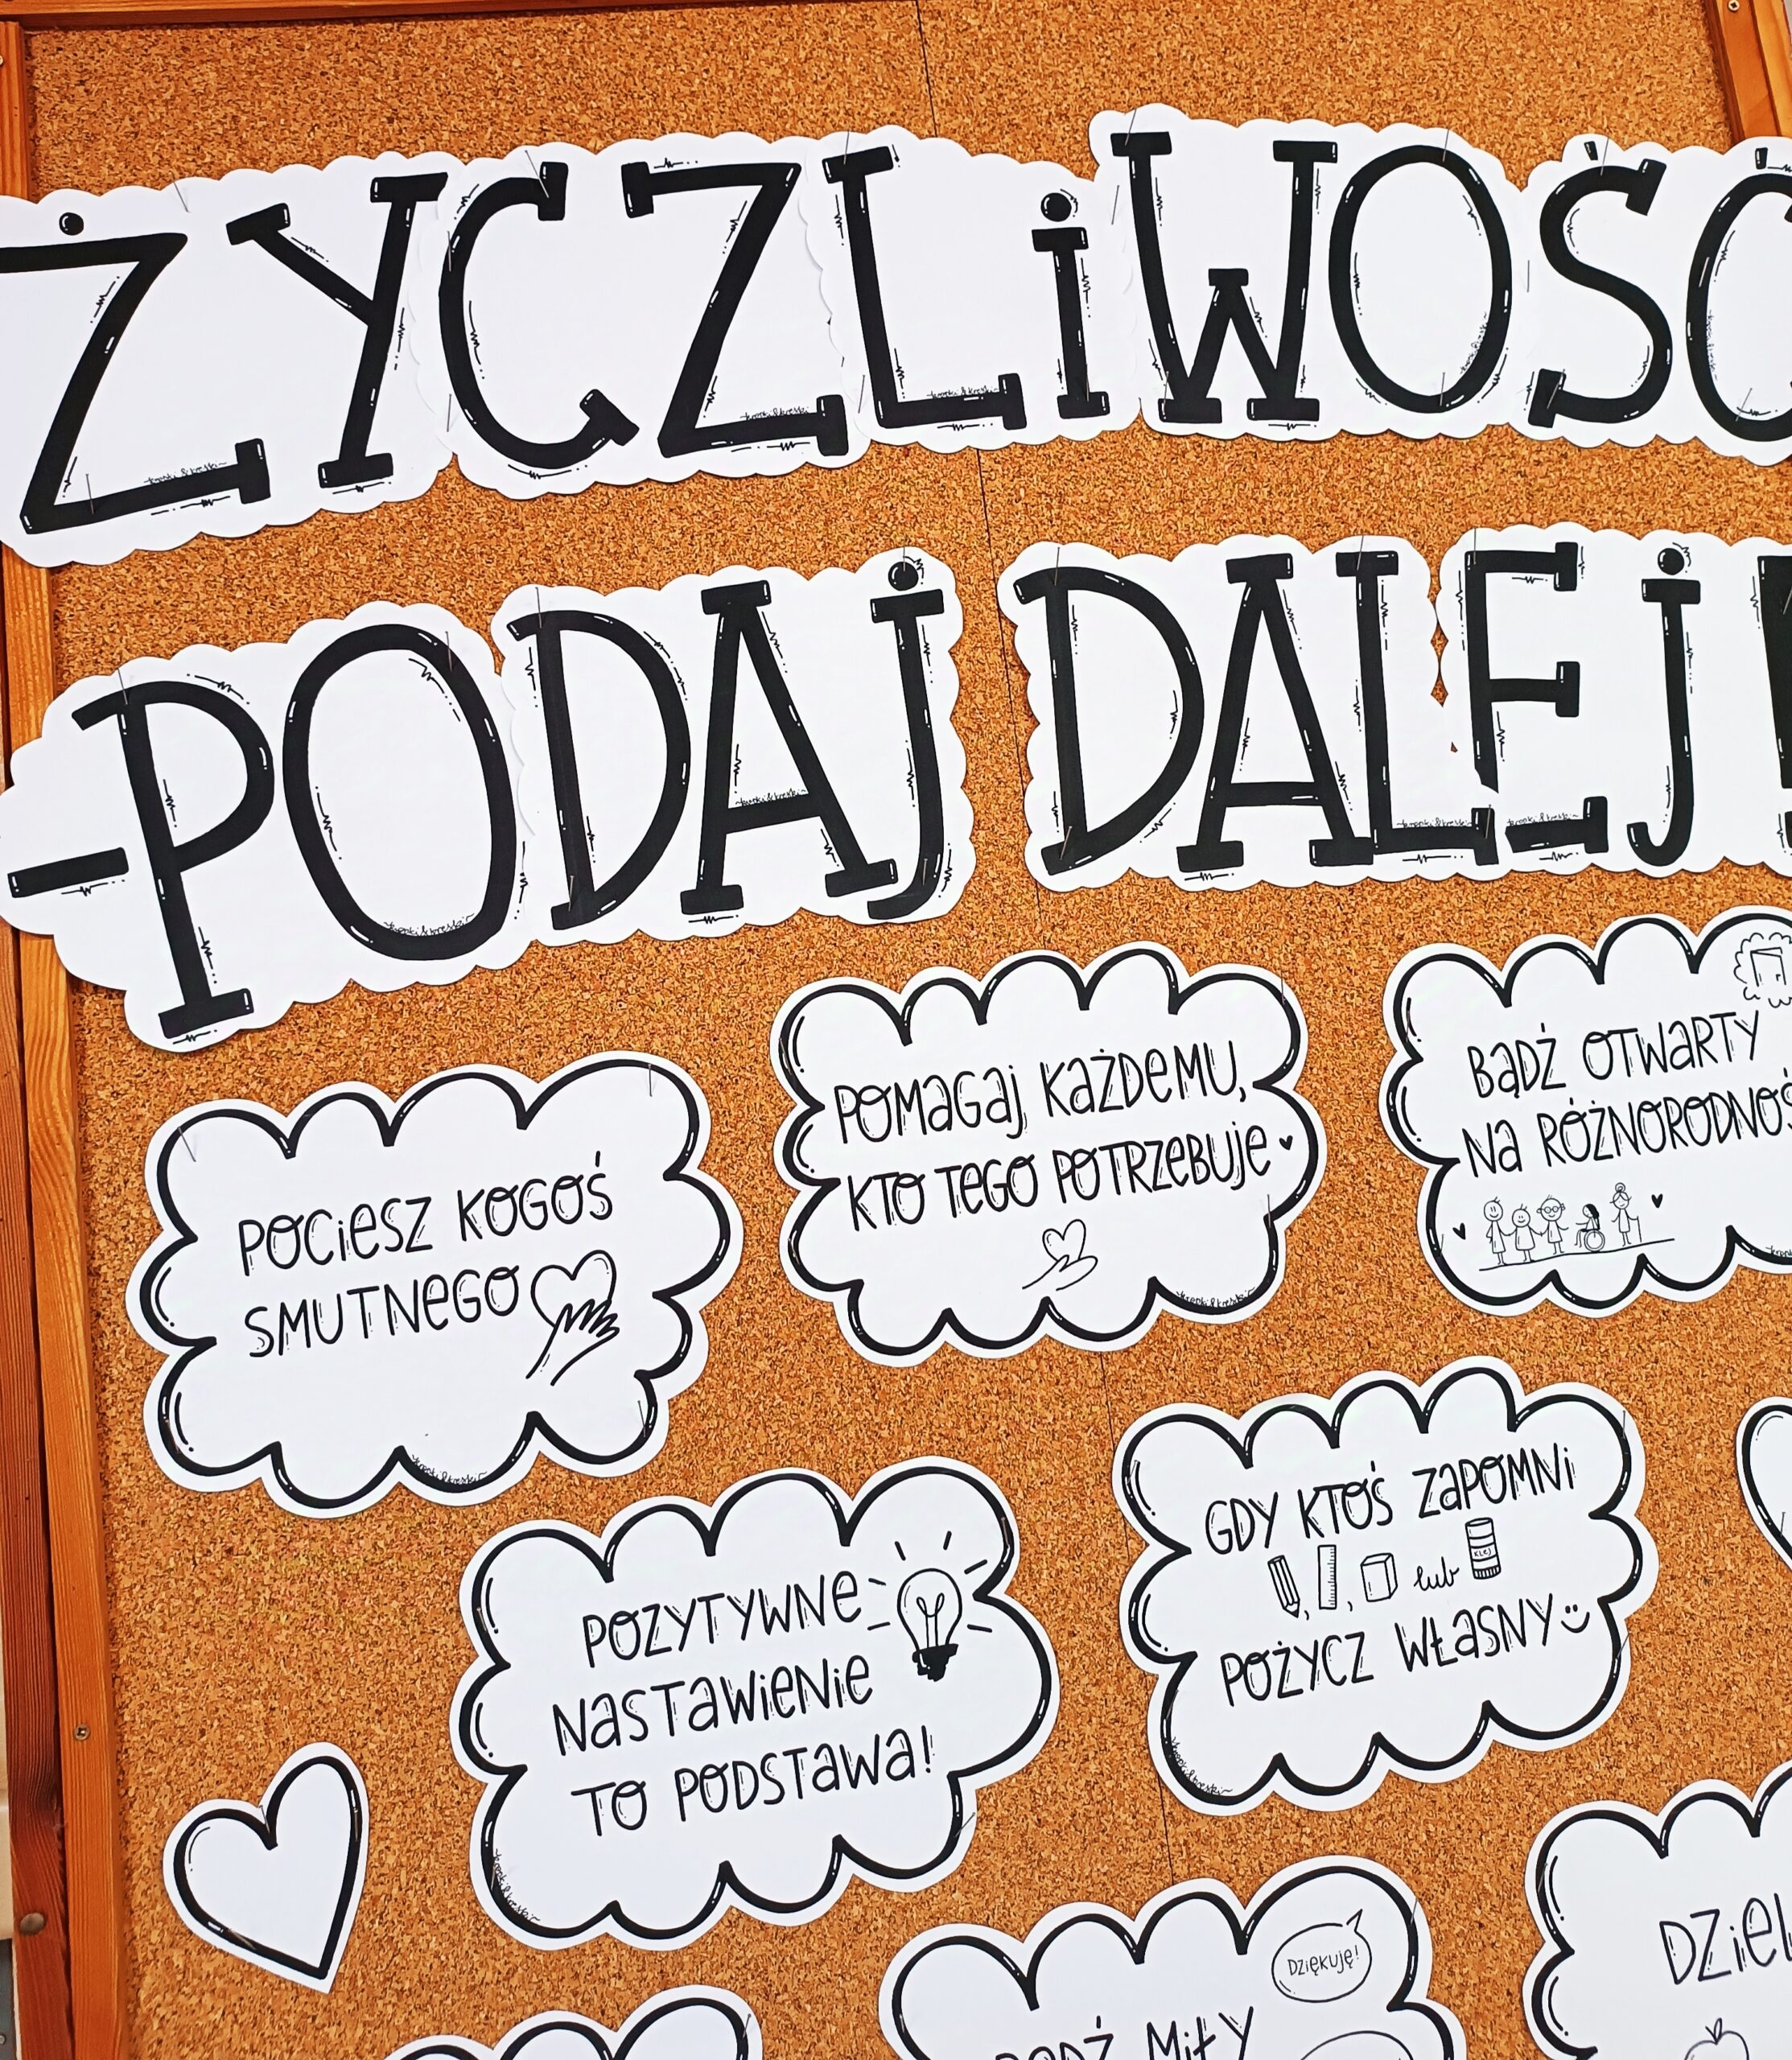 ŻYCZLiWOŚĆ
-PODAJ DALEJ!
POCieSZ KOGOŚ
SMUTNeGO
POMaGaj KaŻDeMU,
KTO TeGO POTRZeBUje
BĄDŹ OTWaRTY
Na RÓŻNORODNOŚ
POZYTYWNe
NaSTaWieNie
TO PODSTaWa!
GDY KTOŚ ZaPOMNi
, , lub KLEJ
POŻYCZ WŁaSNY
Dziękuję!
BĄDŹ MiŁY
DZiel